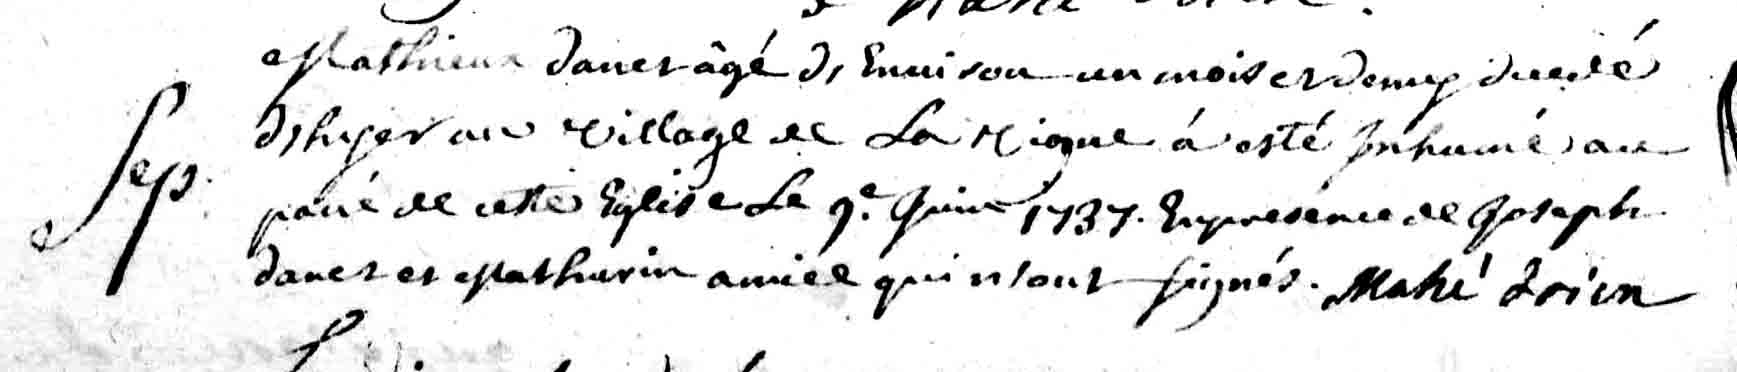 Mathieu danet âgé de Environ un mois et demy decedé
dhyer au village de La Nigue á esté Inhumé au
pavé de cette Eglise Le 9e Juin 1737. En presence de Joseph
danet et Mathurin amice qui n'sont signés. Mahé
Sep.